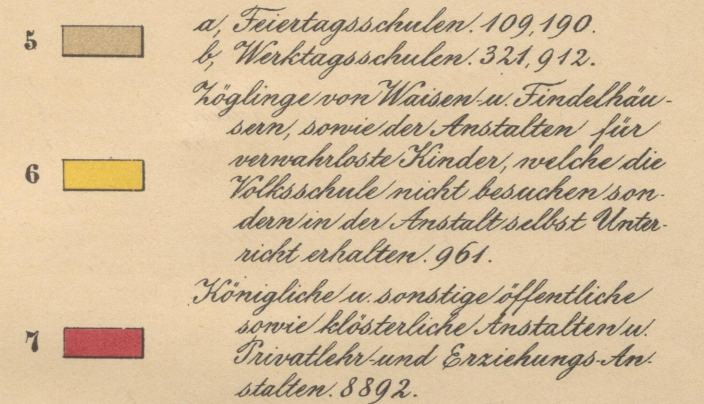 5 a, Feiertagsschulen. 109,190.
b, Werktagsschulen. 321,912.
Zöglinge von Waisen- u. Findelhäu-
sern, sowie der Anstalten für
6 verwahrloste Kinder, welche die
Volksschule nicht besuchen son-
dern in der Anstalt selbst Unter-
richt erhalten. 961.
Königliche u. sonstige öffentliche
7 sowie klösterliche Anstalten u.
Privatlehr- und Erziehungs-An-
stalten. 8892.